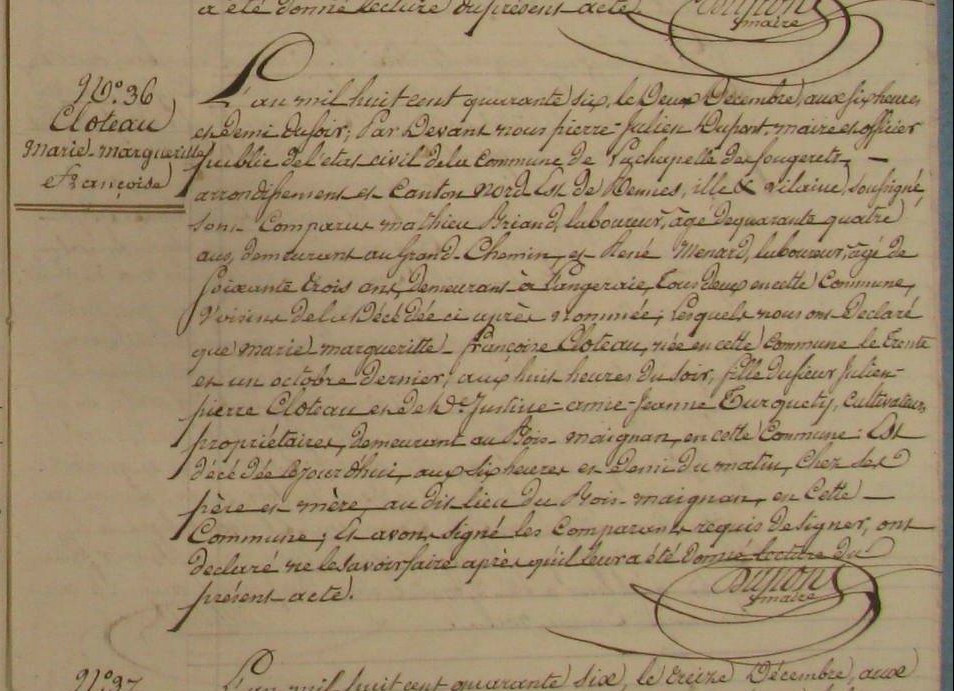 a été donné lecture du présent acte.
Dupont
maire
N.º 36
Cloteau
Marie-margueritte
Françoise
L'an mil huit cent quarante six, le Deux Décembre, aux six heures
et demi du soir; Par Devant nous pierre-Julien Dupont, maire et officier
public de l'état civil de la Commune de La chapelle des fougerets, —
arrondissement et Canton Nord Est de Rennes, ille & vilaine, soussigné,
sont Comparus mathieu Briand, laboureur, âgé de quarante quatre
ans, demeurant au Grand-Chemin, et René Menard, laboureur, âgé de
soixante trois ans, demeurant à Langeraie, Tous deux en cette Commune,
Voisins de la Décédée ci après nommée; Lesquels nous ont Declaré
que marie-margueritte-françoise Cloteau, née en cette Commune le Trente
et un octobre Dernier, aux huit heures du soir, fille du sieur Julien-
pierre Cloteau et de D.e Justine-anne-Jeanne Turquety, Cultivateurs,
propriétaires, demeurant au Bois-maignan, en cette Commune: Est
décédée cejourd'hui, aux six heures et Demi du matin, Chez ses
père et mère, au dit lieu du Bois-maignan, en Cette —
Commune; Et avons signé les Comparants requis de signer, ont
declaré ne le savoir faire après qu'il leur a été donné lecture du
présent acte.
Dupont
maire
N.º 37
L'an mil huit cent quarante six, le treize Décembre, aux